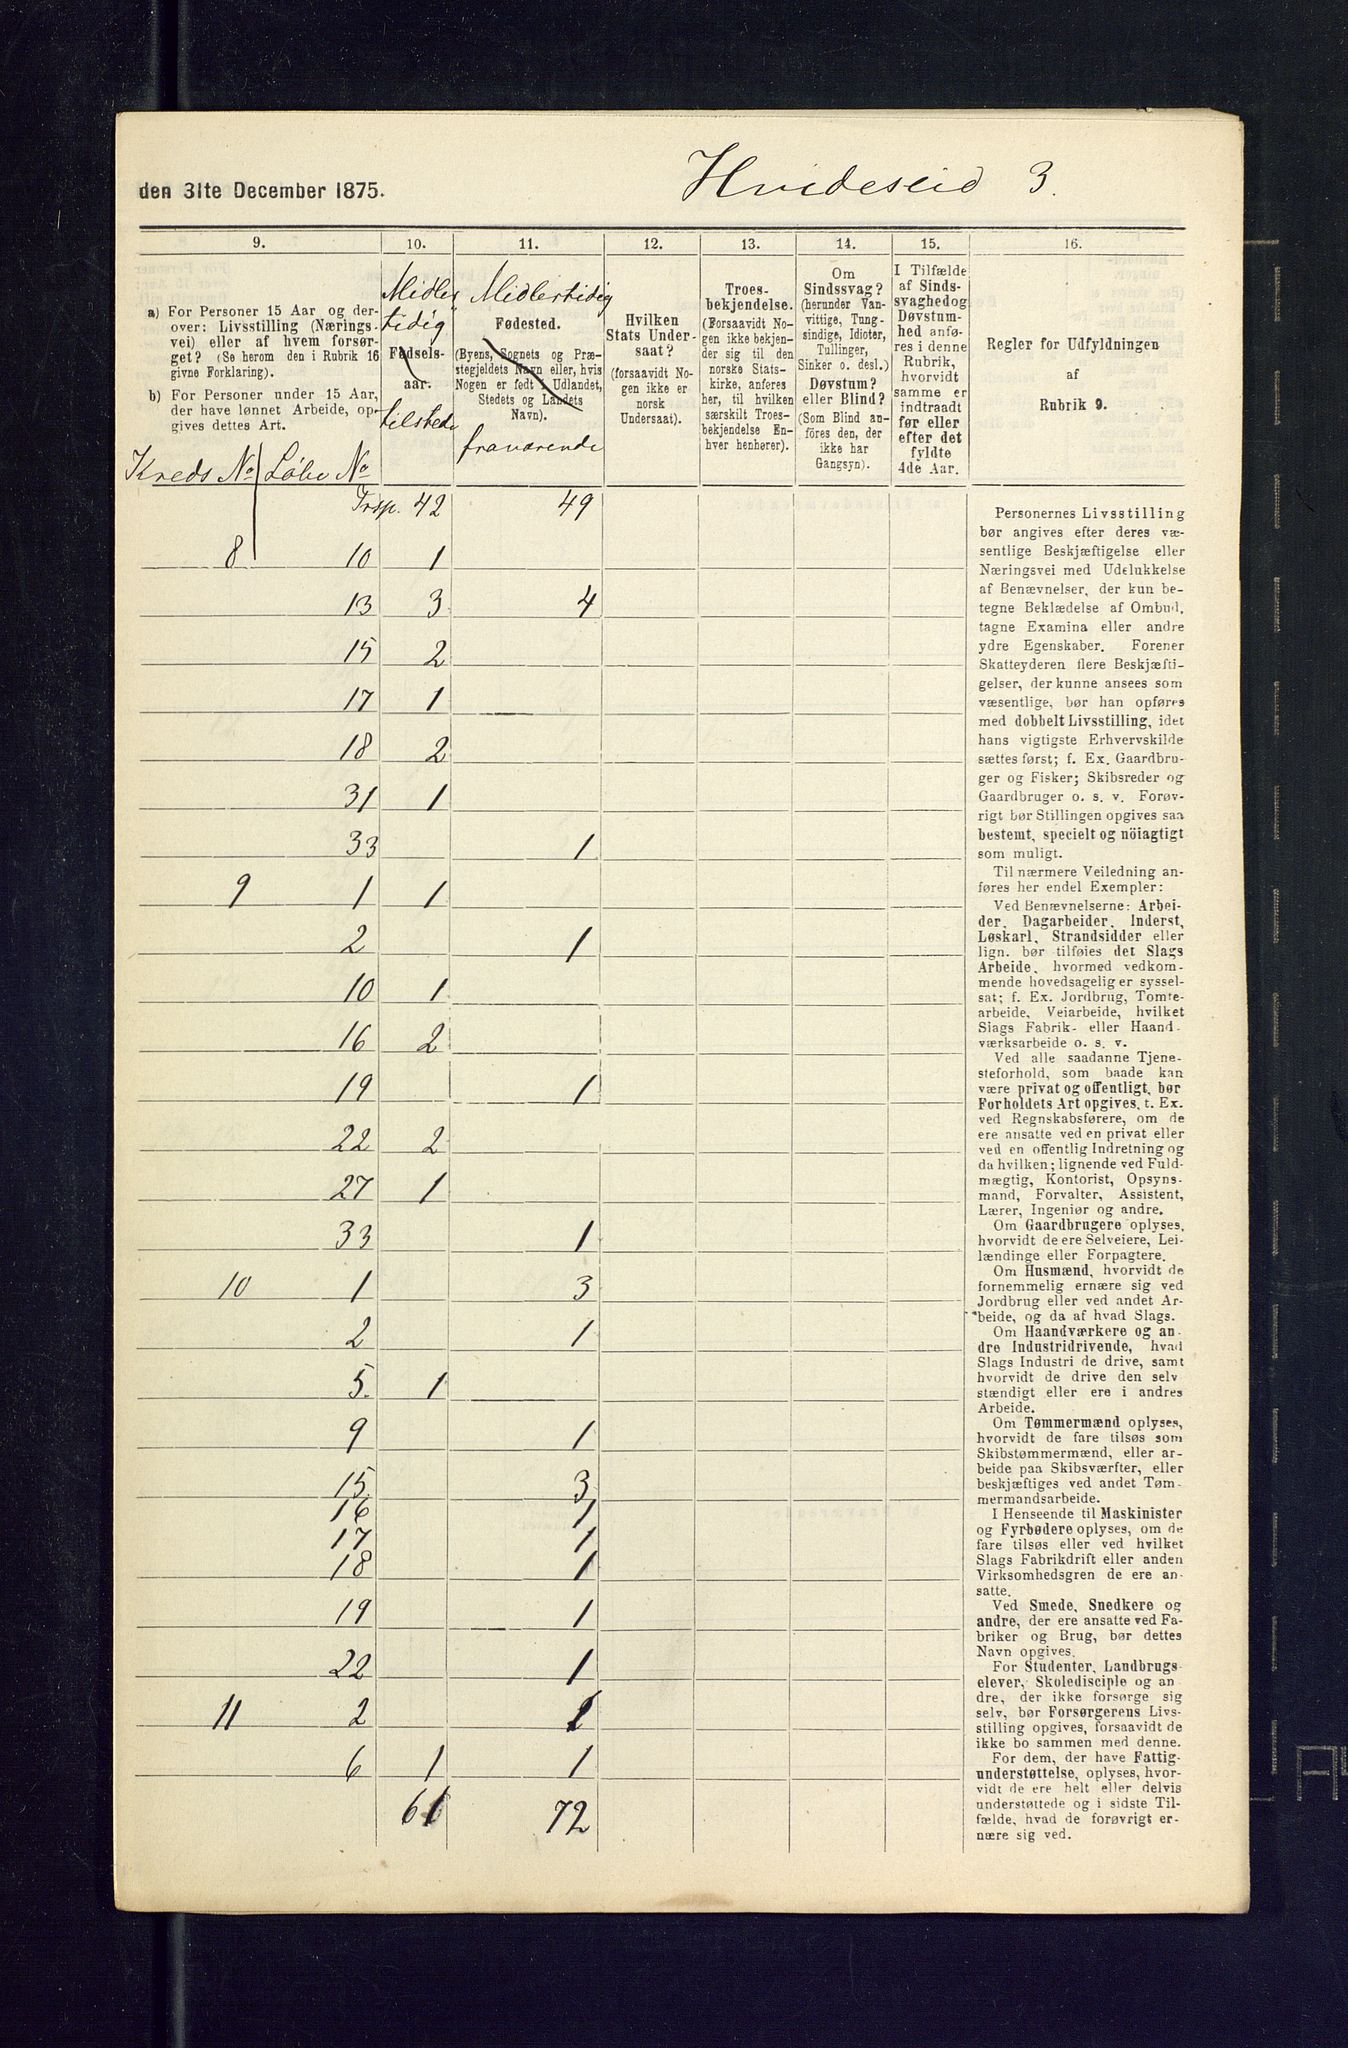 den 31te December 1875.
Hvideseid 3.
9.
10.
11.
12.
13.
14.
15.
16.
a) For Personer 15 Aar og der-
over: Livsstilling (Nærings-
vei) eller af hvem forsør-
get? (Se herom den i Rubrik 16
givne Forklaring).
b) For Personer under 15 Aar,
der have lønnet Arbeide, op-
gives dettes Art.
Kreds No Løbe No
Midler
tidig
Fødsels-
aar.
tilstede
Midlertidig
Fødested.
(Byens, Sognets og Præ-
stegjeldets Navn eller, hvis
Nogen er født i Udlandet,
Stedets og Landets
Navn).
fraværende
Hvilken
Stats Under-
saat?
(forsaavidt No-
gen ikke er
norsk
Undersaat).
Troes-
bekjendelse.
(Forsaavidt No-
gen ikke bekjen-
der sig til den
norske Stats-
kirke, anføres
her, til hvilken
særskilt Troes-
bekjendelse En-
hver henhører).
Om
Sindssvag?
(herunder Van-
vittige, Tung-
sindige, Idioter,
Tullinger,
Sinker o. desl.)
Døvstum?
eller Blind?
(Som Blind an-
føres den, der
ikke har
Gangsyn).
I Tilfælde
af Sinds-
svaghed og
Døvstum-
hed anfø-
res i denne
Rubrik,
hvorvidt
samme er
indtraadt
før eller
efter det
fyldte
4de Aar.
Regler for Udfyldningen
af
Rubrik 9.
Trsp. 42 49
8 10 1
13 3 4
15 2
17 1
18 2
31 1
33 1
9 1 1
2 1
10 1
16 2
19 1
22 2
27 1
33 1
10 1 3
2 1
5. 1
9 1
15 3
16 1
17 1
18 1
19 1
22 1
11 2
6 1 1
61 72
Personernes Livsstilling
bør angives efter deres væ-
sentlige Beskjæftigelse eller
Næringsvei med Udelukkelse
af Benævnelser, der kun be-
tegne Beklædelse af Ombud,
tagne Examina eller andre
ydre Egenskaber. Forener
Skatteyderen flere Beskjæfti-
gelser, der kunne ansees som
væsentlige, bør han opføres
med dobbelt Livsstilling, idet
hans vigtigste Erhvervskilde
sættes først; f. Ex. Gaardbru-
ger og Fisker; Skibsreder og
Gaardbruger o. s. v. Forøv-
rigt bør Stillingen opgives saa
bestemt, specielt og nöiagtigt
som muligt.
Til nærmere Veiledning an-
føres her endel Exempler:
Ved Benævnelserne: Arbei-
der, Dagarbeider, Inderst,
Løskarl, Strandsidder eller
lign. bør tilføies det Slags
Arbeide, hvormed vedkom-
mende hovedsagelig er syssel-
sat; f. Ex. Jordbrug, Tomte-
arbeide, Veiarbeide, hvilket
Slags Fabrik- eller Haand-
værksarbeide o. s. v.
Ved alle saadanne Tjene-
steforhold, som baade kan
være privat og offentligt, bør
Forholdets Art opgives, t. Ex.
ved Regnskabsførere, om de
ere ansatte ved en privat eller
ved en offentlig Indretning og
da hvilken; lignende ved Fuld-
mægtig, Kontorist, Opsyns-
mand, Forvalter, Assistent,
Lærer, Ingeniør og andre.
Om Gaardbrugere oplyses,
hvorvidt de ere Selveiere, Lei-
lændinge eller Forpagtere.
Om Husmænd, hvorvidt de
fornemmelig ernære sig ved
Jordbrug eller ved andet Ar-
beide, og da af hvad Slags.
Om Haandværkere og an-
dre Industridrivende, hvad
Slags Industri de drive, samt
hvorvidt de drive den selv-
stændigt eller ere i andres
Arbeide.
Om Tømmermænd oplyses,
hvorvidt de fare tilsøs som
Skibstømmermænd, eller ar-
beide paa Skibsværfter, eller
beskjæftiges ved andet Tøm-
mermandsarbeide.
I Henseende til Maskinister
og Fyrbødere oplyses, om de
fare tilsøs eller ved hvilket
Slags Fabrikdrift eller anden
Virksomhedsgren de ere an-
satte.
Ved Smede, Snedkere og
andre, der ere ansatte ved Fa-
briker og Brug, bør dettes
Navn opgives.
For Studenter, Landbrugs-
elever, Skoledisciple og an-
dre, der ikke forsørge sig
selv, bør Forsørgerens Livs-
stilling opgives, forsaavidt de
ikke bo sammen med denne.
For dem, der have Fattig-
understøttelse, oplyses, hvor-
vidt de ere helt eller delvis
understøttede og i sidste Til-
fælde, hvad de forøvrigt er-
nære sig ved.